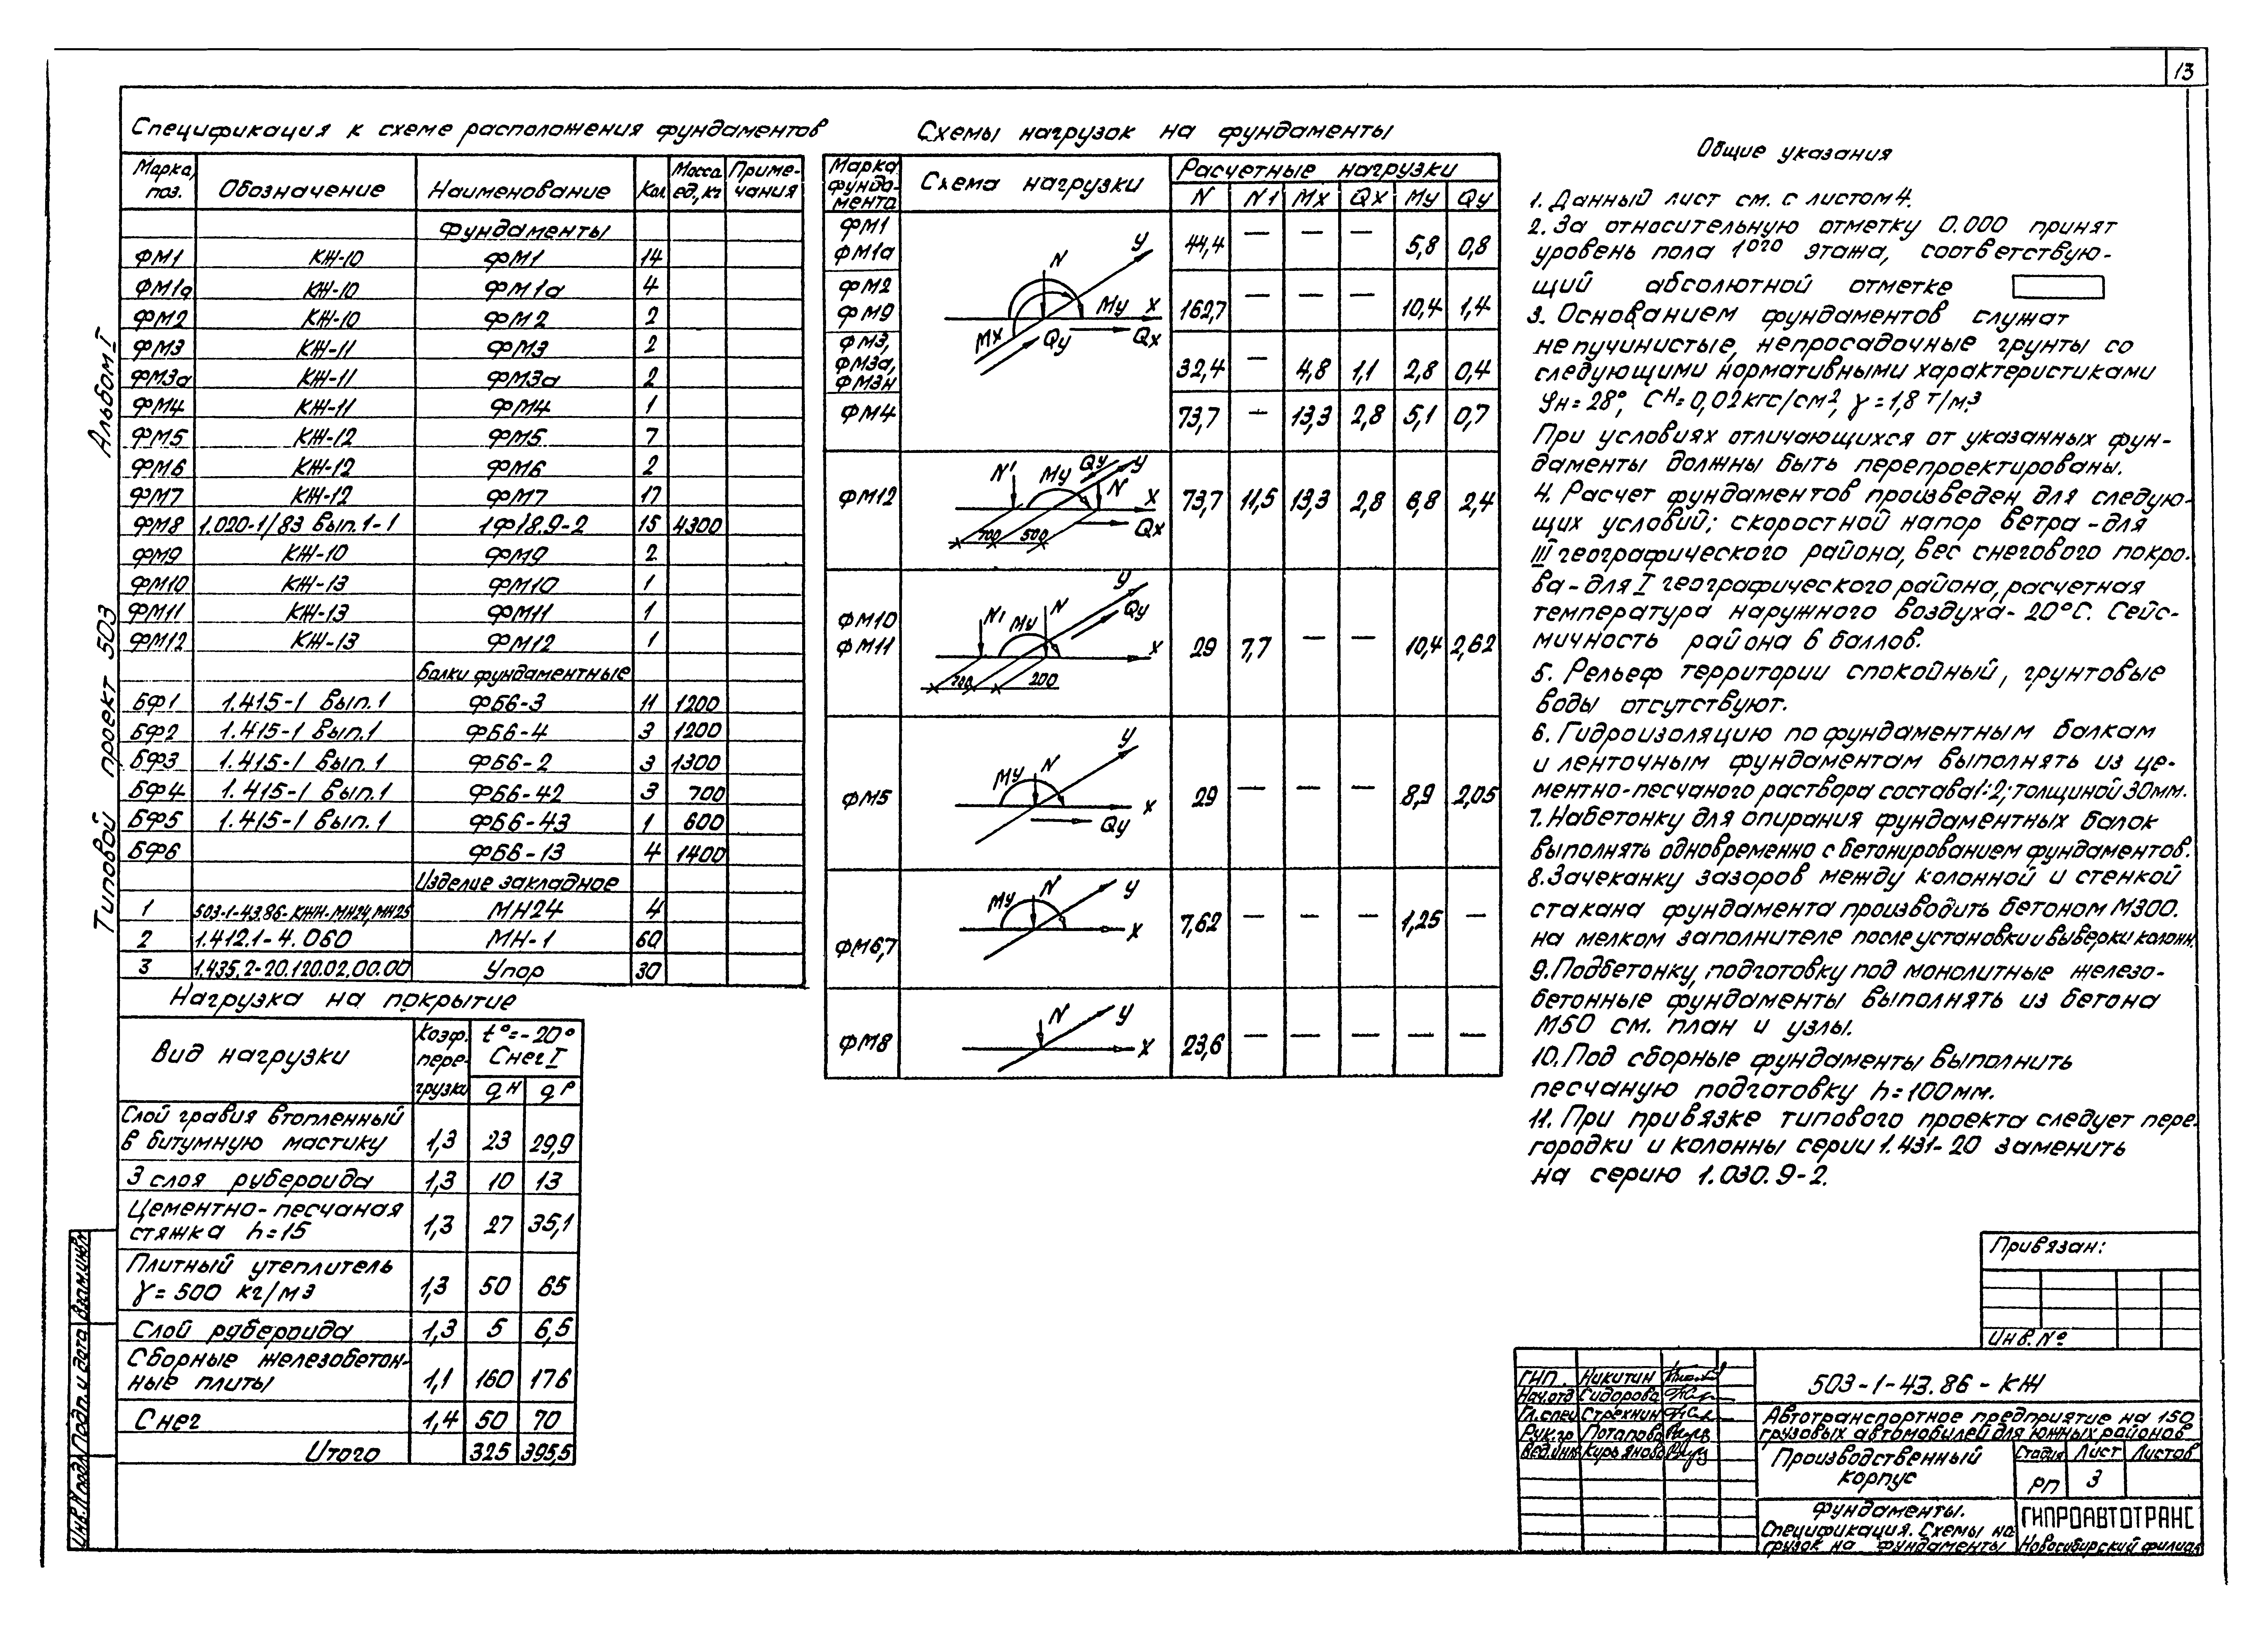 13
Альбом I
Типовой проект 503
Спецификация к схеме расположения фундаментов
Марка, поз. Обозначение Наименование Кол. Масса ед., кг Приме-чания
Фундаменты
ФМ1 КЖ-10 ФМ1 14
ФМ1а КЖ-10 ФМ1а 4
ФМ2 КЖ-10 ФМ2 2
ФМ3 КЖ-11 ФМ3 2
ФМ3а КЖ-11 ФМ3а 2
ФМ4 КЖ-11 ФМ4 1
ФМ5 КЖ-12 ФМ5 7
ФМ6 КЖ-12 ФМ6 2
ФМ7 КЖ-12 ФМ7 17
ФМ8 1.020-1/83 вып.1-1 1Ф18.9-2 15 4300
ФМ9 КЖ-10 ФМ9 2
ФМ10 КЖ-13 ФМ10 1
ФМ11 КЖ-13 ФМ11 1
ФМ12 КЖ-13 ФМ12 1
Балки фундаментные
БФ1 1.415-1 вып.1 ФБ6-3 11 1200
БФ2 1.415-1 вып.1 ФБ6-4 3 1200
БФ3 1.415-1 вып.1 ФБ6-2 3 1300
БФ4 1.415-1 вып.1 ФБ6-42 3 700
БФ5 1.415-1 вып.1 ФБ6-43 1 600
БФ6 ФБ6-13 4 1400
Изделие закладное
1 503-1-43.86-КЖИ-МН24,МН25 МН24 4
2 1.412.1-4.060 МН-1 60
3 1.435.2-20.120.02.00.00 Упор 30
Нагрузка на покрытие
Вид нагрузки Коэф. пере-грузки t°=-20° Снег I
qн qр
Слой гравия втопленный
в битумную мастику 1,3 23 29,9
3 слоя рубероида 1,3 10 13
Цементно-песчаная
стяжка h=15 1,3 27 35,1
Плитный утеплитель
γ=500 кг/м3 1,3 50 65
Слой рубероида 1,3 5 6,5
Сборные железобетон-
ные плиты 1,1 160 176
Снег 1,4 50 70
Итого 325 395,5
Схемы нагрузок на фундаменты
Марка фунда-мента Схема нагрузки Расчетные нагрузки
N N1 Mx Qx My Qy
ФМ1
ФМ1а 44,4 — — — 5,8 0,8
ФМ2
ФМ9 162,7 — — — 10,4 1,4
ФМ3,
ФМ3а,
ФМ3н 32,4 — 4,8 1,1 2,8 0,4
ФМ4 73,7 — 13,3 2,8 5,1 0,7
N y My x Mx Qy Qx
ФМ12 73,7 11,5 13,3 2,8 6,8 2,4
N' My Qy y N x Qx 700 500
ФМ10
ФМ11 29 7,7 — — 10,4 2,62
N1 My N y Qy x 700 200
ФМ5 29 — — — 8,9 2,05
My N y x Qy
ФМ6,7 7,62 — — — 1,25 —
My N y x
ФМ8 23,6 — — — — —
N y x
Общие указания
1. Данный лист см. с листом 4.
2. За относительную отметку 0.000 принят
уровень пола 1ого этажа, соответствую-
щий абсолютной отметке
3. Основанием фундаментов служат
непучинистые, непросадочные грунты со
следующими нормативными характеристиками
φн=28°, Cн=0,02кгс/см2, γ=1,8 т/м3
При условиях отличающихся от указанных фун-
даменты должны быть перепроектированы.
4. Расчет фундаментов произведен для следую-
щих условий; скоростной напор ветра-для
III географического района, вес снегового покро-
ва-для I географического района, расчетная
температура наружного воздуха-20°С. Сейс-
мичность района 6 баллов.
5. Рельеф территории спокойный, грунтовые
воды отсутствуют.
6. Гидроизоляцию по фундаментным балкам
и ленточным фундаментам выполнять из це-
ментно-песчаного раствора состава 1:2; толщиной 30мм.
7. Набетонку для опирания фундаментных балок
выполнять одновременно с бетонированием фундаментов.
8. Зачеканку зазоров между колонной и стенкой
стакана фундамента производить бетоном М300.
на мелком заполнителе после установки и выверки колонн.
9. Подбетонку, подготовку под монолитные железо-
бетонные фундаменты выполнять из бетона
М50 см. план и узлы.
10. Под сборные фундаменты выполнить
песчаную подготовку h=100мм.
11. При привязке типового проекта следует пере-
городки и колонны серии 1.431-20 заменить
на серию 1.030.9-2.
Привязан:
Инв.№
ГИП. Никитин
Нач.отд Сидорова
Гл.спец Стрехнин
Рук.гр Потапова
Вед.инж Курьянова
503-1-43.86-КЖ
Автотранспортное предприятие на 150
грузовых автомобилей для южных районов
Производственный
корпус
Стадия Лист Листов
РП 3
Фундаменты.
Спецификация. Схемы на-
грузок на фундаменты
ГИПРОАВТОТРАНС
Новосибирский филиал
Инв.№подл. Подп. и дата Взам.инв.№